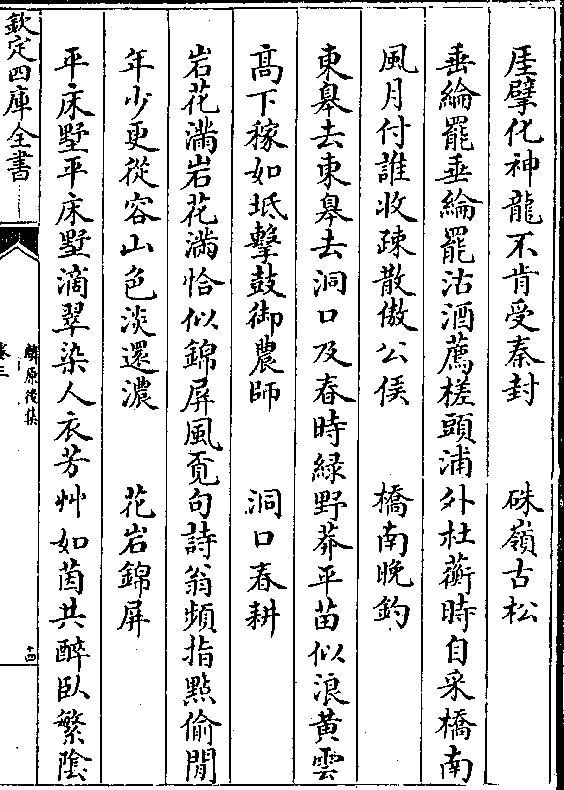 厓擘化神龍不肯受秦封　　硃嶺古松
垂綸罷垂綸罷沽酒薦槎頭浦外杜蘅時自采橋南
風月付誰收疎散傲公侯　　橋南晚釣
東皋去東皋去洞口及春時緑野莽平苗似浪黃雲
髙下稼如坻擊鼓御農師　　洞口春耕
岩花滿岩花滿恰似錦屏風覔句詩翁頻指點偷閒
年少更從容山色淡還濃　　花岩錦屏
平床墅平床墅滴翠染人衣芳艸如茵共醉臥繁隂
欽定四庫全書
麟原後集
卷三
十四